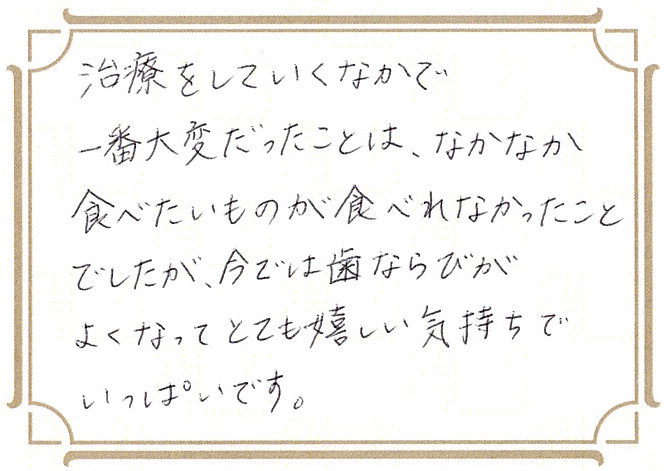 治療をしていくなかで
一番大変だったことは、なかなか
食べたいものが食べれなかったこと
でしたが、今では歯ならびが
よくなってとても嬉しい気持ちで
いっぱいです。